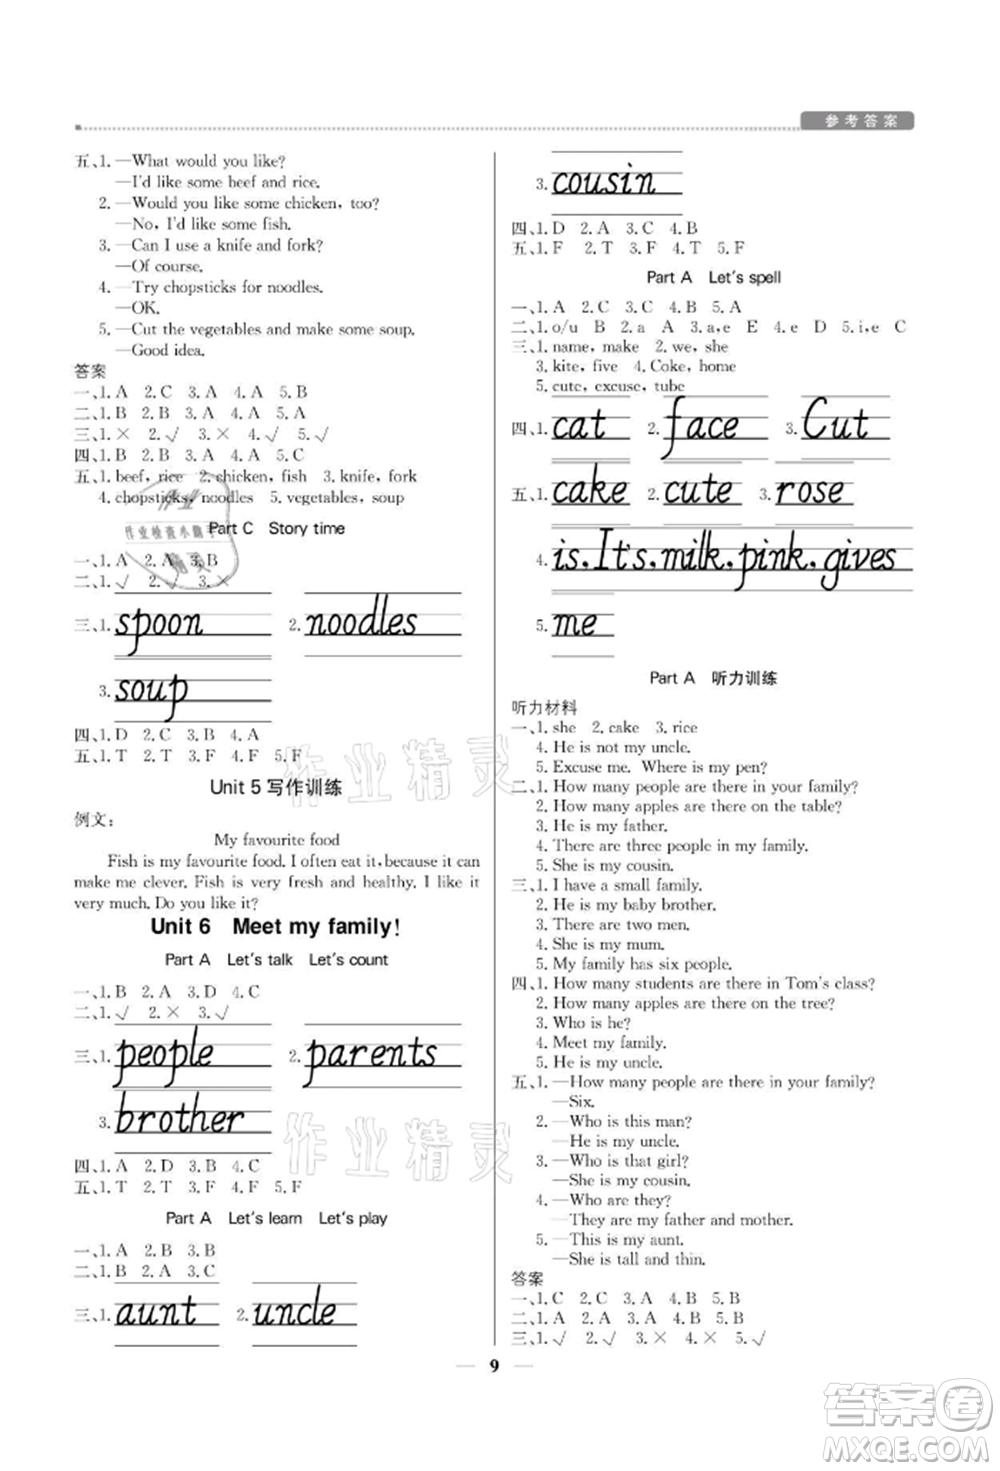 参考答案
五、1. —What would you like?
—I'd like some beef and rice.
2. —Would you like some chicken, too?
—No, I'd like some fish.
3. —Can I use a knife and fork?
—Of course.
4. —Try chopsticks for noodles.
—OK.
5. —Cut the vegetables and make some soup.
—Good idea.
答案
一、1. A 2. C 3. A 4. A 5. B
二、1. B 2. B 3. A 4. A 5. A
三、1. × 2. √ 3. × 4. √ 5. √
四、1. B 2. B 3. A 4. A 5. C
五、1. beef, rice 2. chicken, fish 3. knife, fork
4. chopsticks, noodles 5. vegetables, soup
Part C Story time
一、1. A 2. A 3. B
二、1. √ 2. √ 3. ×
三、1. spoon 2. noodles
3. soup
四、1. D 2. C 3. B 4. A
五、1. T 2. T 3. F 4. F 5. F
Unit 5 写作训练
例文:
My favourite food
Fish is my favourite food. I often eat it, because it can
make me clever. Fish is very fresh and healthy. I like it
very much. Do you like it?
Unit 6 Meet my family!
Part A Let's talk Let's count
一、1. B 2. A 3. D 4. C
二、1. √ 2. × 3. √
三、1. people 2. parents
3. brother
四、1. A 2. D 3. B 4. C
五、1. T 2. T 3. F 4. F 5. F
Part A Let's learn Let's play
一、1. A 2. B 3. B
二、1. B 2. A 3. C
三、1. aunt 2. uncle
3. cousin
四、1. D 2. A 3. C 4. B
五、1. F 2. T 3. F 4. T 5. F
Part A Let's spell
一、1. A 2. C 3. B 4. B 5. A
二、1. o/u B 2. a A 3. a,e E 4. e D 5. i,e C
三、1. name, make 2. we, she
3. kite, five 4. Coke, home
5. cute, excuse, tube
四、1. cat 2. face 3. Cut
五、1. cake 2. cute 3. rose
4. is. It's. milk. pink. gives
5. me
Part A 听力训练
听力材料
一、1. she 2. cake 3. rice
4. He is not my uncle.
5. Excuse me. Where is my pen?
二、1. How many people are there in your family?
2. How many apples are there on the table?
3. He is my father.
4. There are three people in my family.
5. She is my cousin.
三、1. I have a small family.
2. He is my baby brother.
3. There are two men.
4. She is my mum.
5. My family has six people.
四、1. How many students are there in Tom's class?
2. How many apples are there on the tree?
3. Who is he?
4. Meet my family.
5. He is my uncle.
五、1. —How many people are there in your family?
—Six.
2. —Who is this man?
—He is my uncle.
3. —Who is that girl?
—She is my cousin.
4. —Who are they?
—They are my father and mother.
5. —This is my aunt.
—She is tall and thin.
答案
一、1. C 2. C 3. A 4. B 5. B
二、1. A 2. A 3. B 4. A 5. B
三、1. √ 2. √ 3. × 4. × 5. √
— 9 —
作业检查小助手
作业精灵
作业精灵
答案圈
MXQE.COM